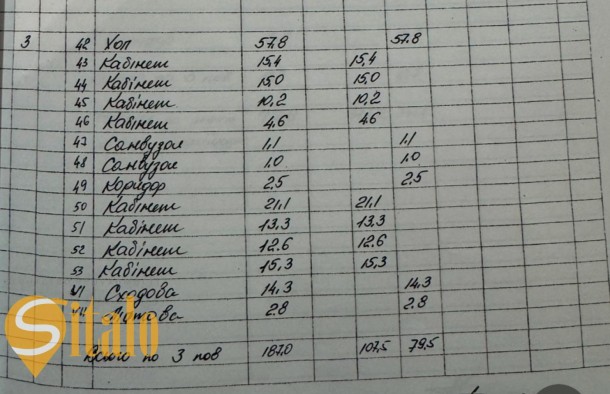 3 42 Хол 57,8 57.8
43 Кабінет 15,4 15,4
44 Кабінет 15,0 15,0
45 Кабінет 10,2 10,2
46 Кабінет 4,6 4,6
47 Санвузол 1,1 1,1
48 Санвузол 1,0 1,0
49 Коридор 2,5 2,5
50 Кабінет 21,1 21,1
51 Кабінет 13,3 13,3
52 Кабінет 12.6 12.6
53 Кабінет 15,3 15,3
VI Сходова 14,3 14,3
2.8 2.8
Всього по 3 пов 187,0 107,5 79,5
Sitalo